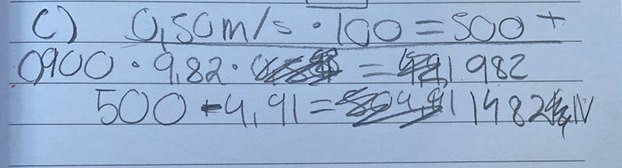 C) 0,50m/s · 100 = 500 +
0900 · 9,82 · = 982
500 - 4,91 = 1482 N